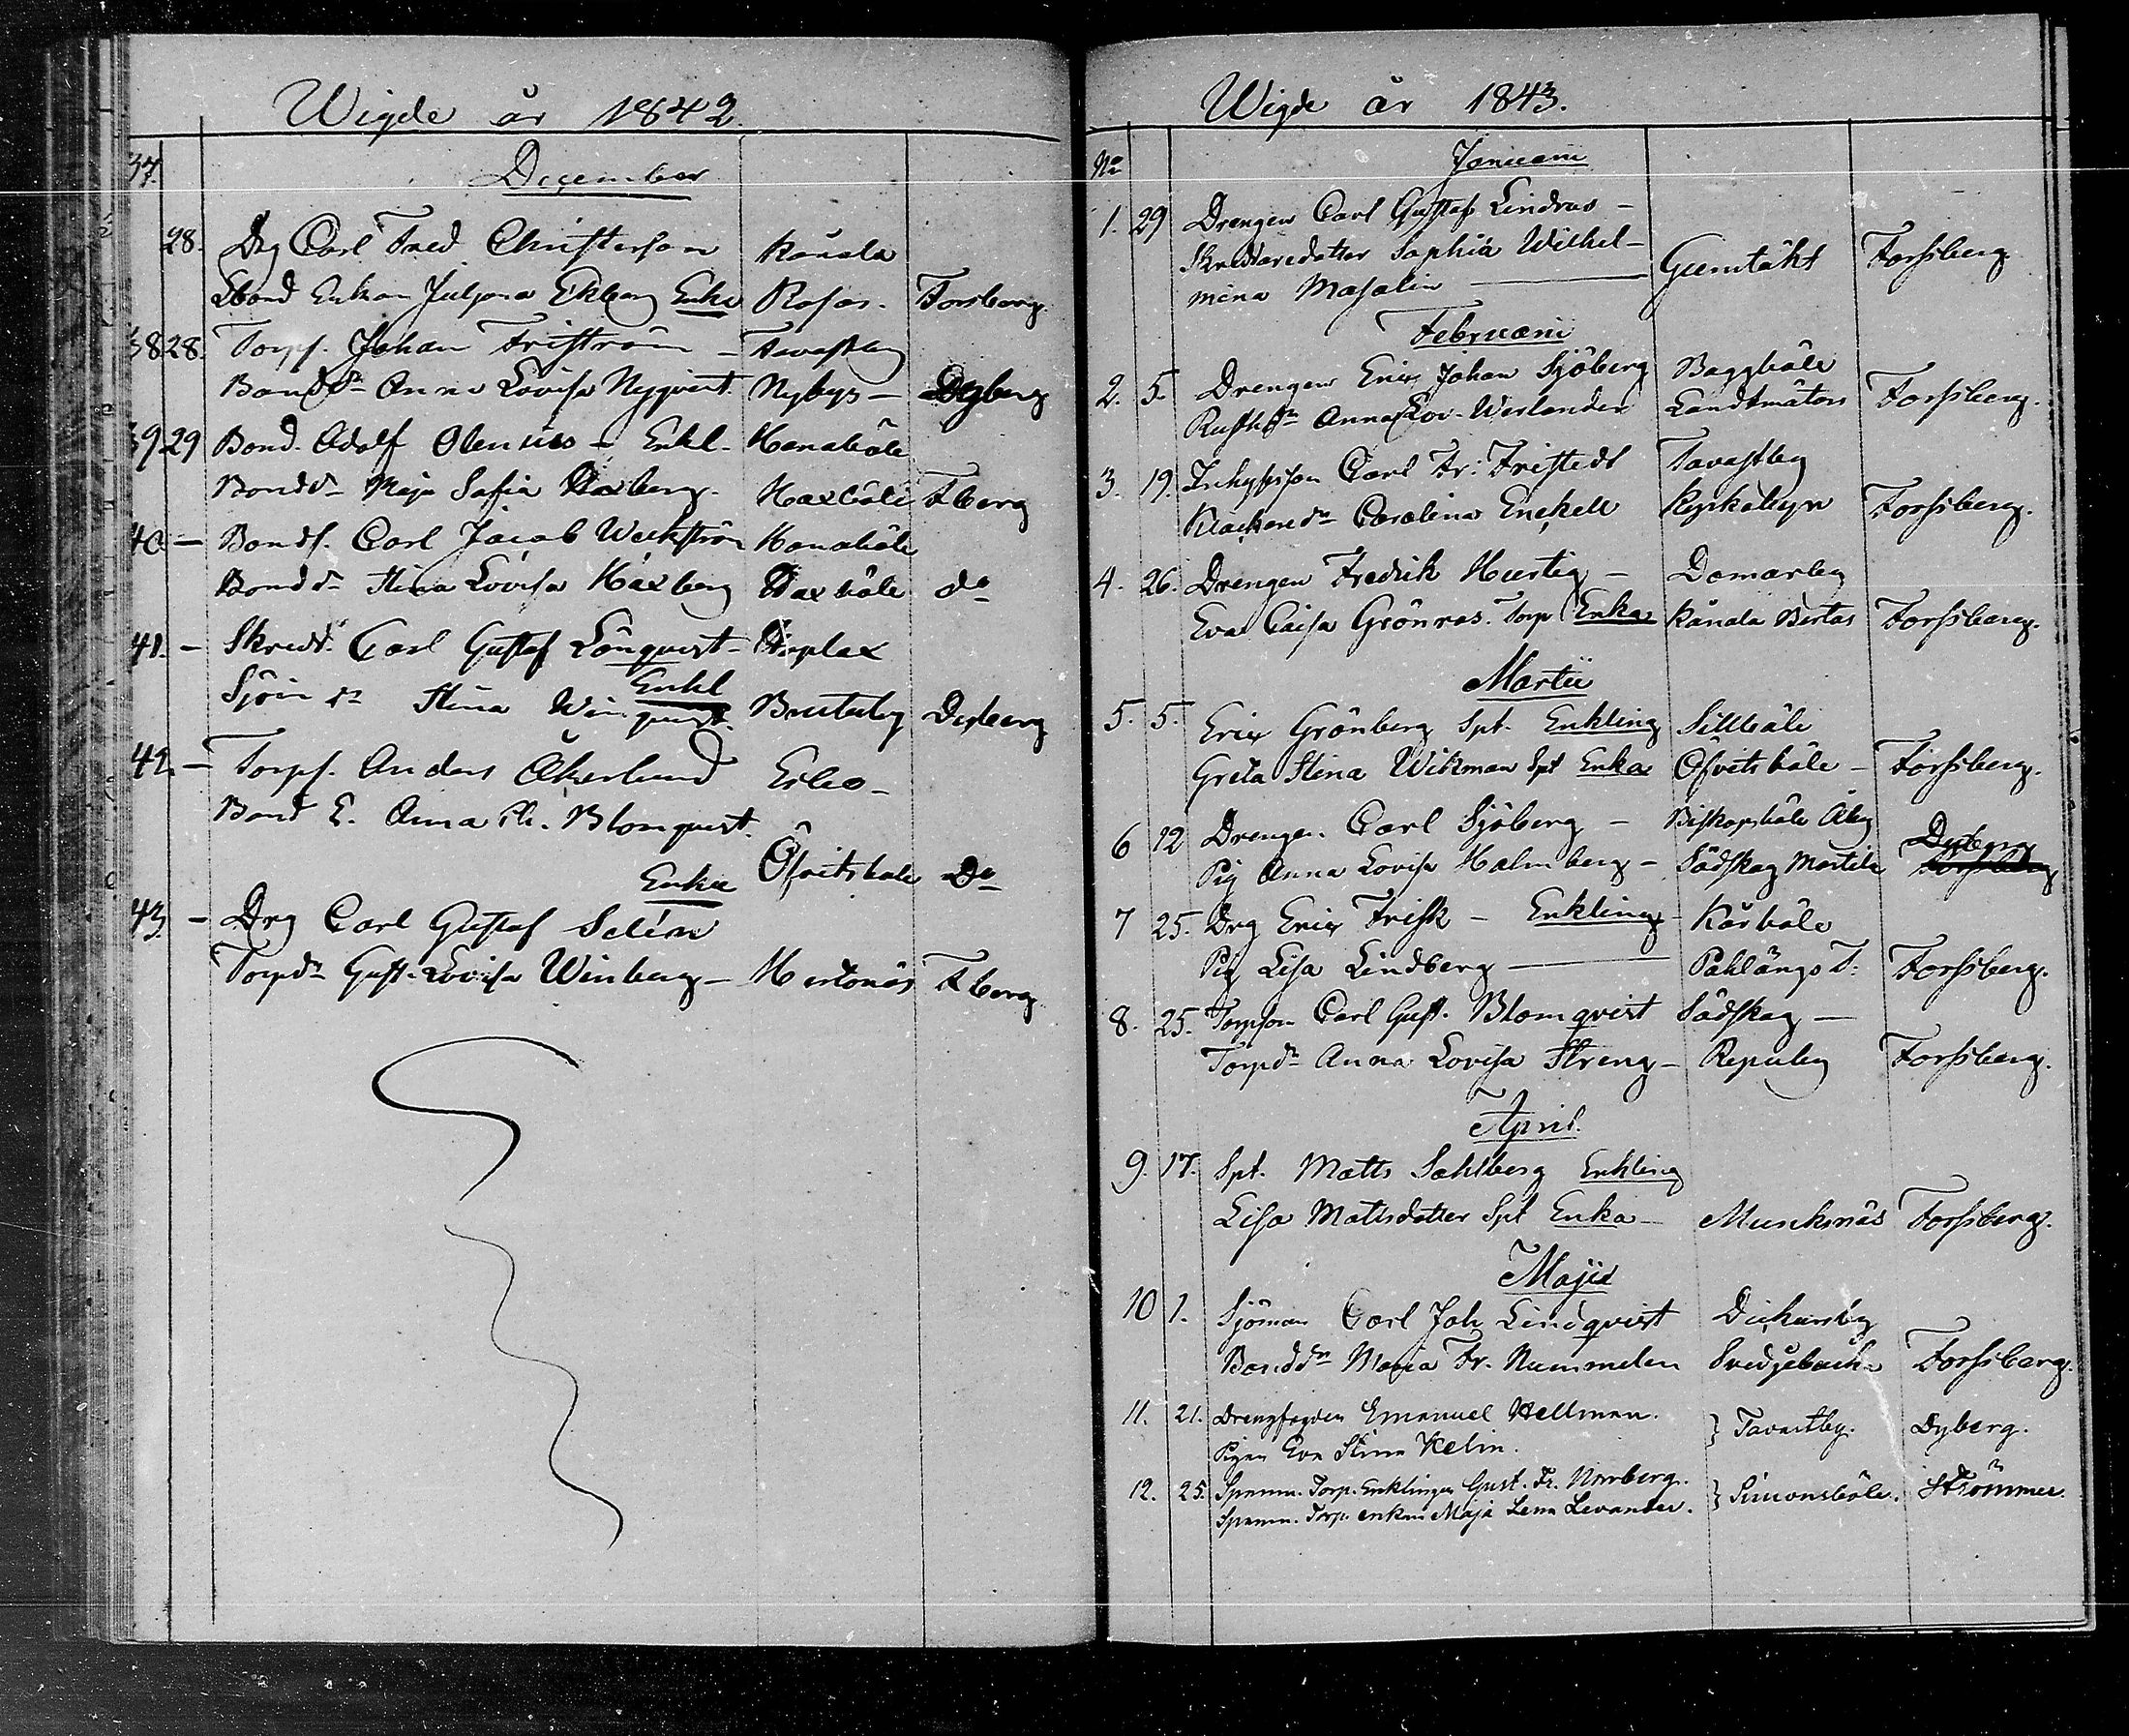 Wigde år 1842.
December
37.
28. Drg Carl Fred Christerson Kånala
Lbond Enkan Juljana Ekberg Enka Rosas. Forsberg.
38 28. Torps. Johan Friström - Tavastby
Bondd:r Anna Lovisa Nyqvist. Nybys - Dyberg
39 29 Bond. Adolf Olenius - Enkl. Hanaböle
Bondd:r Maja Sofia Haxberg. Haxböle Fberg
40 - Bonds. Carl Jacob Weckström Hanaböle
Bondd:r Stina Lovisa Haxberg Haxböle d:o
41. - Skredd. Carl Gustaf Lönqvist - Hoplax
Enkl
Stina Winqvist Busterby Dyberg
42. - Torps. Anders Åkerlund Esbo -
Bond E. Anna Blomqvist.
Enka Öfvitsböle D:o
43. - Drg Carl Gustaf Selin
Torpd:r Gust. Lovisa Winberg - Hertonäs Fberg
Wigde år 1843.
N:o Januarii
1. 29 Drengen Carl Gustaf Lindros -
Skreddaredotter Sophia Wilhel-
mina Masalin Gumtäkt Forssberg.
Februarii
2. 5. Drengen Eric Johan Sjöberg Baggböle
Rusth.d:r Anna Lov. Weslander Landtmäters Forssberg.
3. 19. Inhyssson Carl Fr: Fristedt Tavastby
Klackared:r Carolina Enckell Kyrkobyn Forssberg.
4. 26. Drengen Fredrik Hurtig - Domarby
Eva Caisa Grönros. Torp Enka Kånala Bertas Forssberg.
Martii
5. 5. Eric Grönberg Spt. Enkling Sillböle
Greta Stina Wikman Spt Enka Öfvitsböle - Forssberg.
6 12 Drengen Carl Sjöberg - Biskopsböle Åby
Pig Anna Lovisa Holmberg - Södskog Mortila Dyberg
7 25. Drg Eric Frisk - Enkling - Kårböle
Pig Lisa Lindberg Påhlängs T: Forssberg.
8. 25. Torpson Carl Gust. Blomqvist Södskog -
Torpd:r Anna Lovisa Streng - Repuby Forssberg.
April.
9. 17. Spt. Matts Sahlberg Enkling
Lisa Mattsdotter Spt Enka - Munksnäs Forssberg.
Maji
10 1. Sjöman Carl Joh Lindqvist Dickursby
Bondd:r Maria Fr. Nummelin Svedjebacka Forssberg.
11. 21. Drengfogden Emanuel Hellman.
Pigan Eva Stina Kelin. } Tavastby. Dyberg.
12. 25. Spanm. Torp. Enklingen Gust. Fr. Norrberg.
Spanm. Torp. enkan Maja Lena Levander. } Simonsböle. Strömmer.